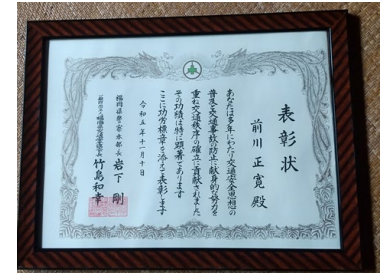 表彰状
前川正寛殿
あなたは多年にわたり交通安全思想の
普及と交通事故の防止に献身的な努力を
重ね交通秩序の確立に貢献されました
その功績は特に顕著であります
ここに功労標章を添えて表彰します
令和五年十一月十日
福岡県警察本部長 岩下剛
竹島和幸